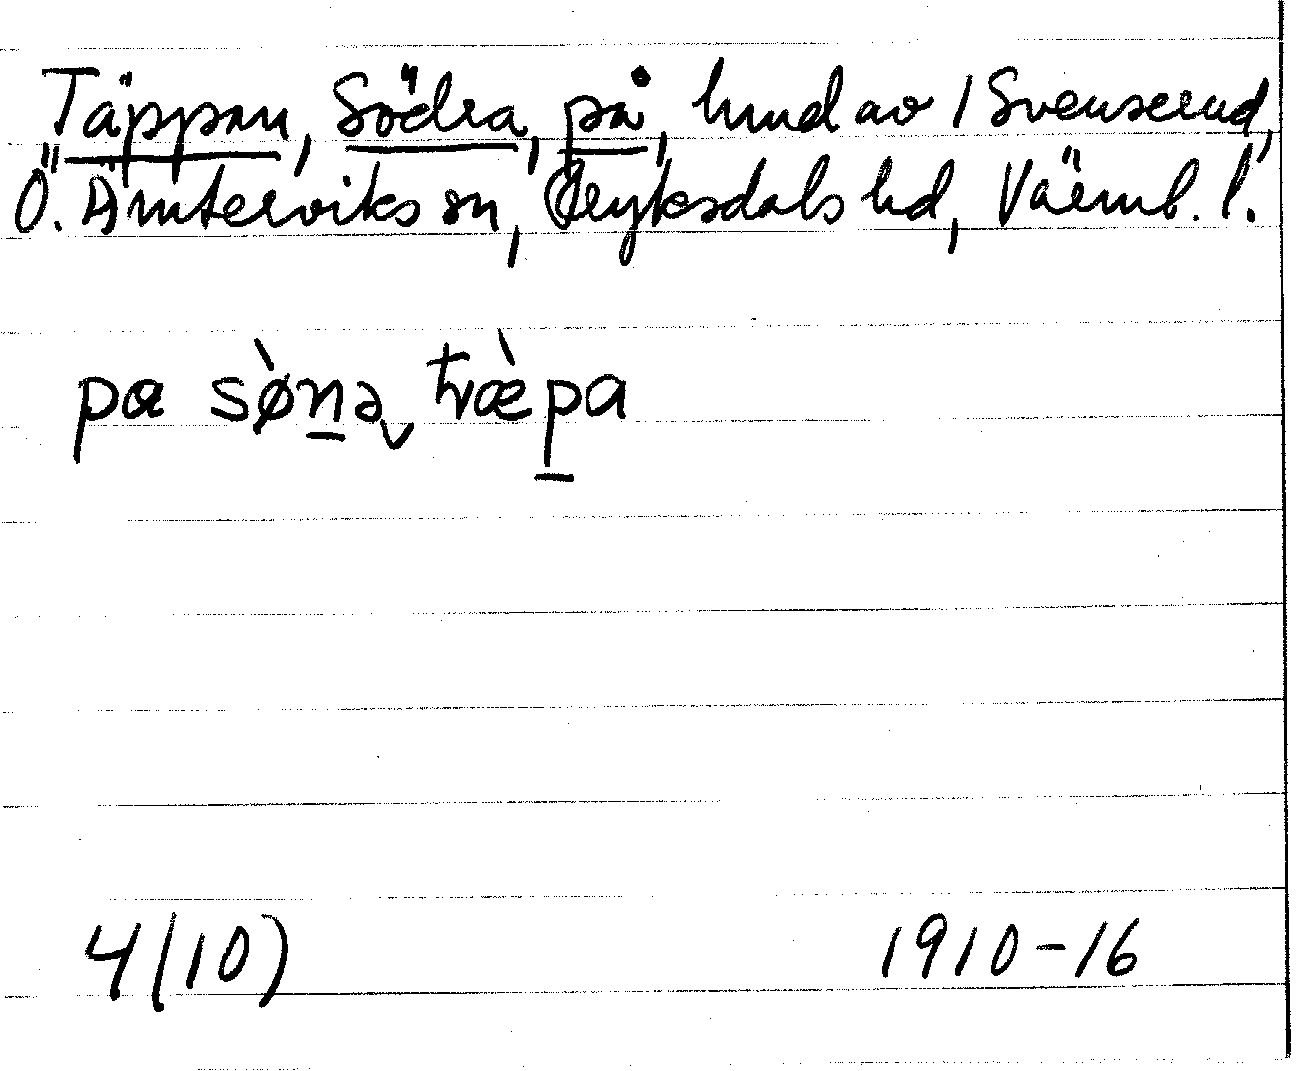 Täppan, Södra, på, hmd av 1 Svenserud,
Ö. Ämterviks sn, Fryksdals hd, Värml. l.
pα sø̀n̲ə tvæ̀p̲a
4(10) 1910-16